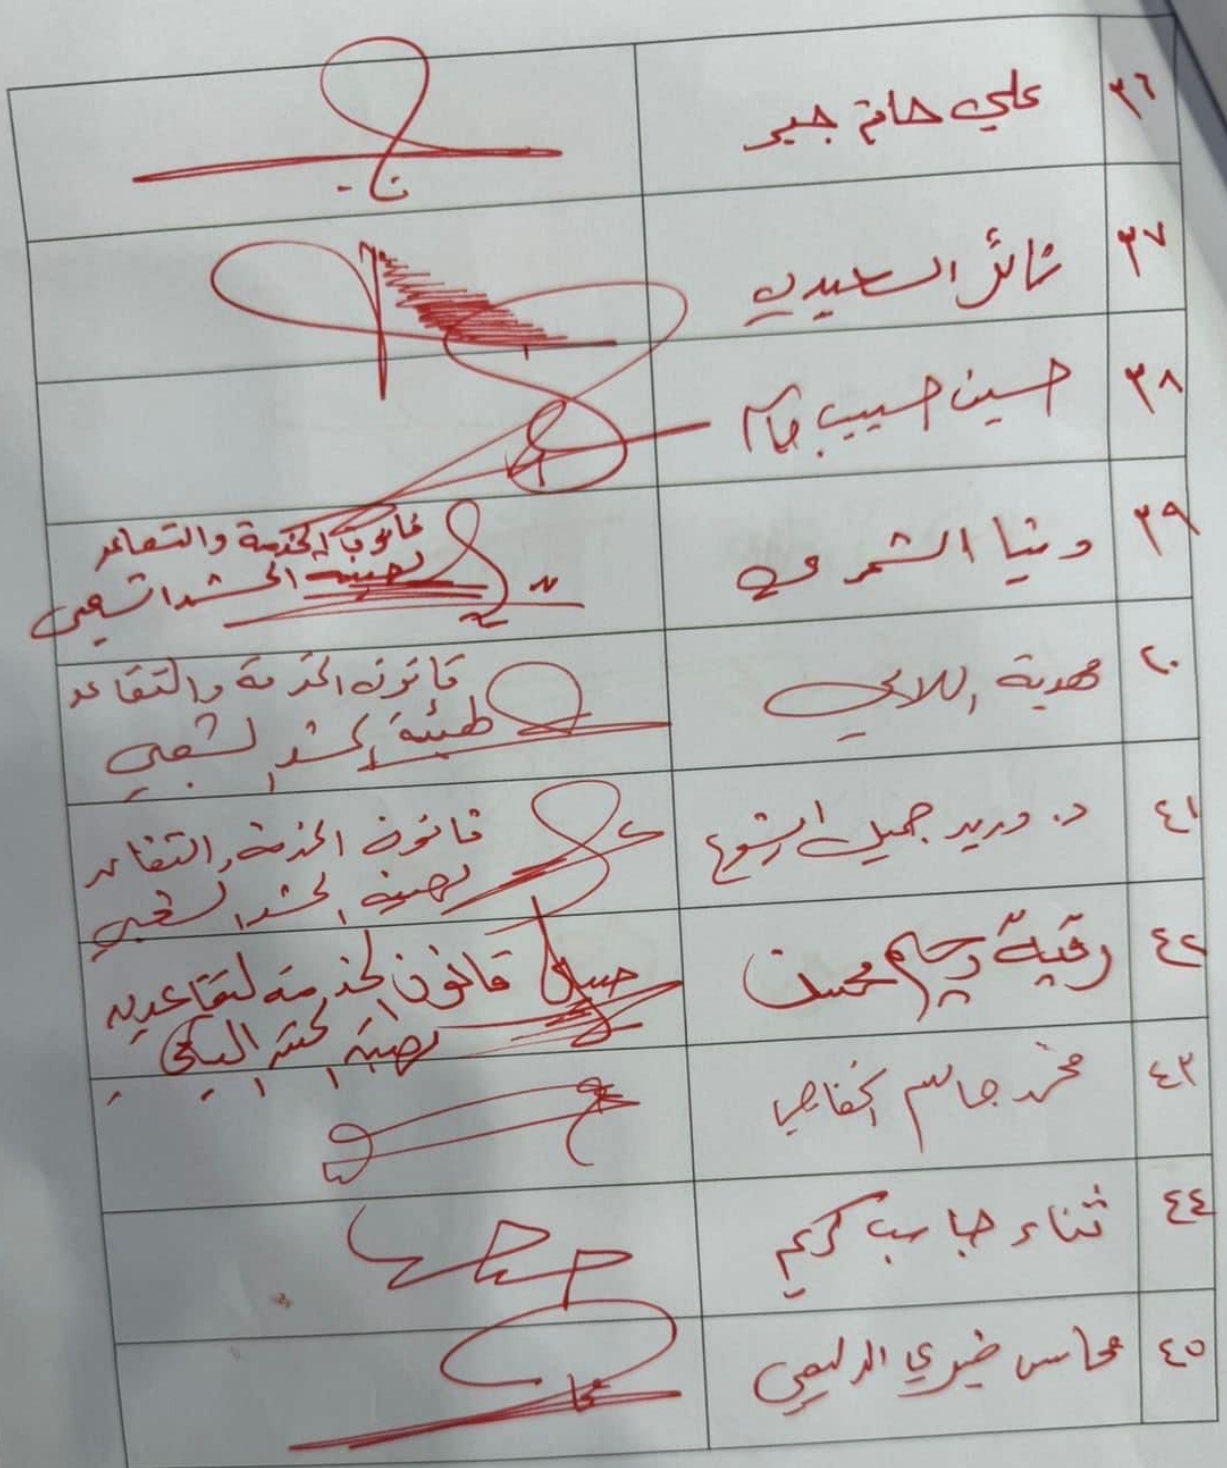 ٣٦ علي حاتم جبر
٣٧ نائل الساعيدي
٣٨ حسين حبيب
٣٩ دنيا الشمري
قانون الخدمة والتقاعد
لهيئة الحشد الشعبي
٤٠ مهدية اللامي
قانون الخدمة والتقاعد
لهيئة الحشد الشعبي
٤١ د. دريد جميل ايشوع
قانون الخدمة والتقاعد
لهيئة الحشد الشعبي
٤٢ رقية رحيم محسن
قانون الخدمة لتقاعدية
لهيئة الحشد
٤٣ محمد جاسم الخفاجي
٤٤ ثناء جاسب كريم
٤٥ محاسن خيري الدليمي